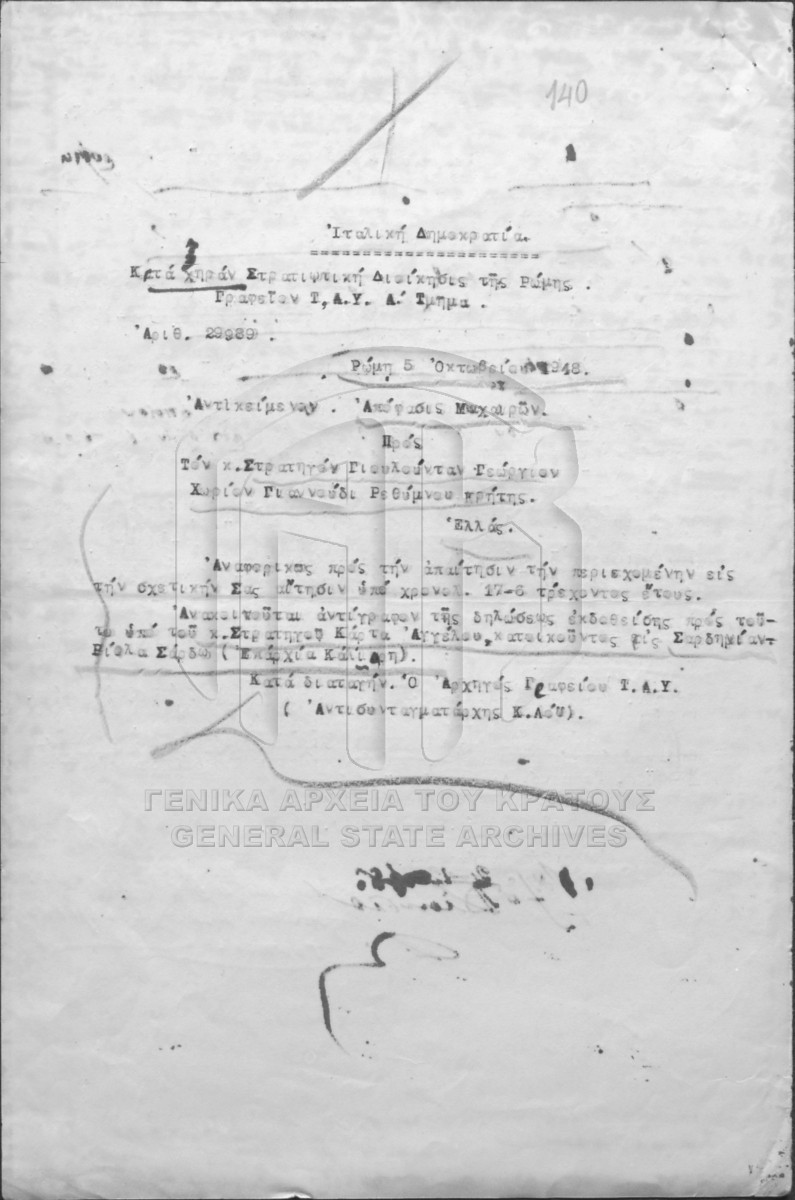 140
Ἰταλική Δημοκρατία.
Κατά ξηράν Στρατιωτική Διοίκησις τῆς Ρώμης .
Γραφεῖον Τ,Α.Υ. Α.΄ Τμημα .
Ἀριθ. 29989 .
Ρώμη 5 Ὀκτωβρίου 1948.
Ἀντικείμενον . Ἀπόφασις Μαχαιρῶν.
Πρός
Τόν κ.Στρατηγόν Γιουλούνταν Γεώργιον
Χωρίον Γιαννούδι Ρεθύμνου κρήτης.
Ἑλλάς.
Ἀναφορικῶς πρός τήν ἀπαίτησιν τήν περιεχομένην εἰς
τήν σχετικήν Σας αἴτησιν ὑπό χρονολ. 17-6 τρέχοντος ἔτους.
Ἀνακοιτοῦται ἀντίγραφον τῆς δηλώσεως ἐκδοθείσης πρός τοῦ-
το ὑπό τοῦ κ.Στρατηγοῦ Κάρτα Ἀγγέλου,κατοικοῦντος εἰς
Ριόλα Σάρδω ( Ἐπάρχία Κάλιαρη).
Κατά διαταγήν. Ὁ Ἀρχηγός Γραφείου Τ.Α.Υ.
( Ἀντισυνταγματάρχης Κ.Λόϋ).
ΓΕΝΙΚΑ ΑΡΧΕΙΑ ΤΟΥ ΚΡΑΤΟΥΣ
GENERAL STATE ARCHIVES